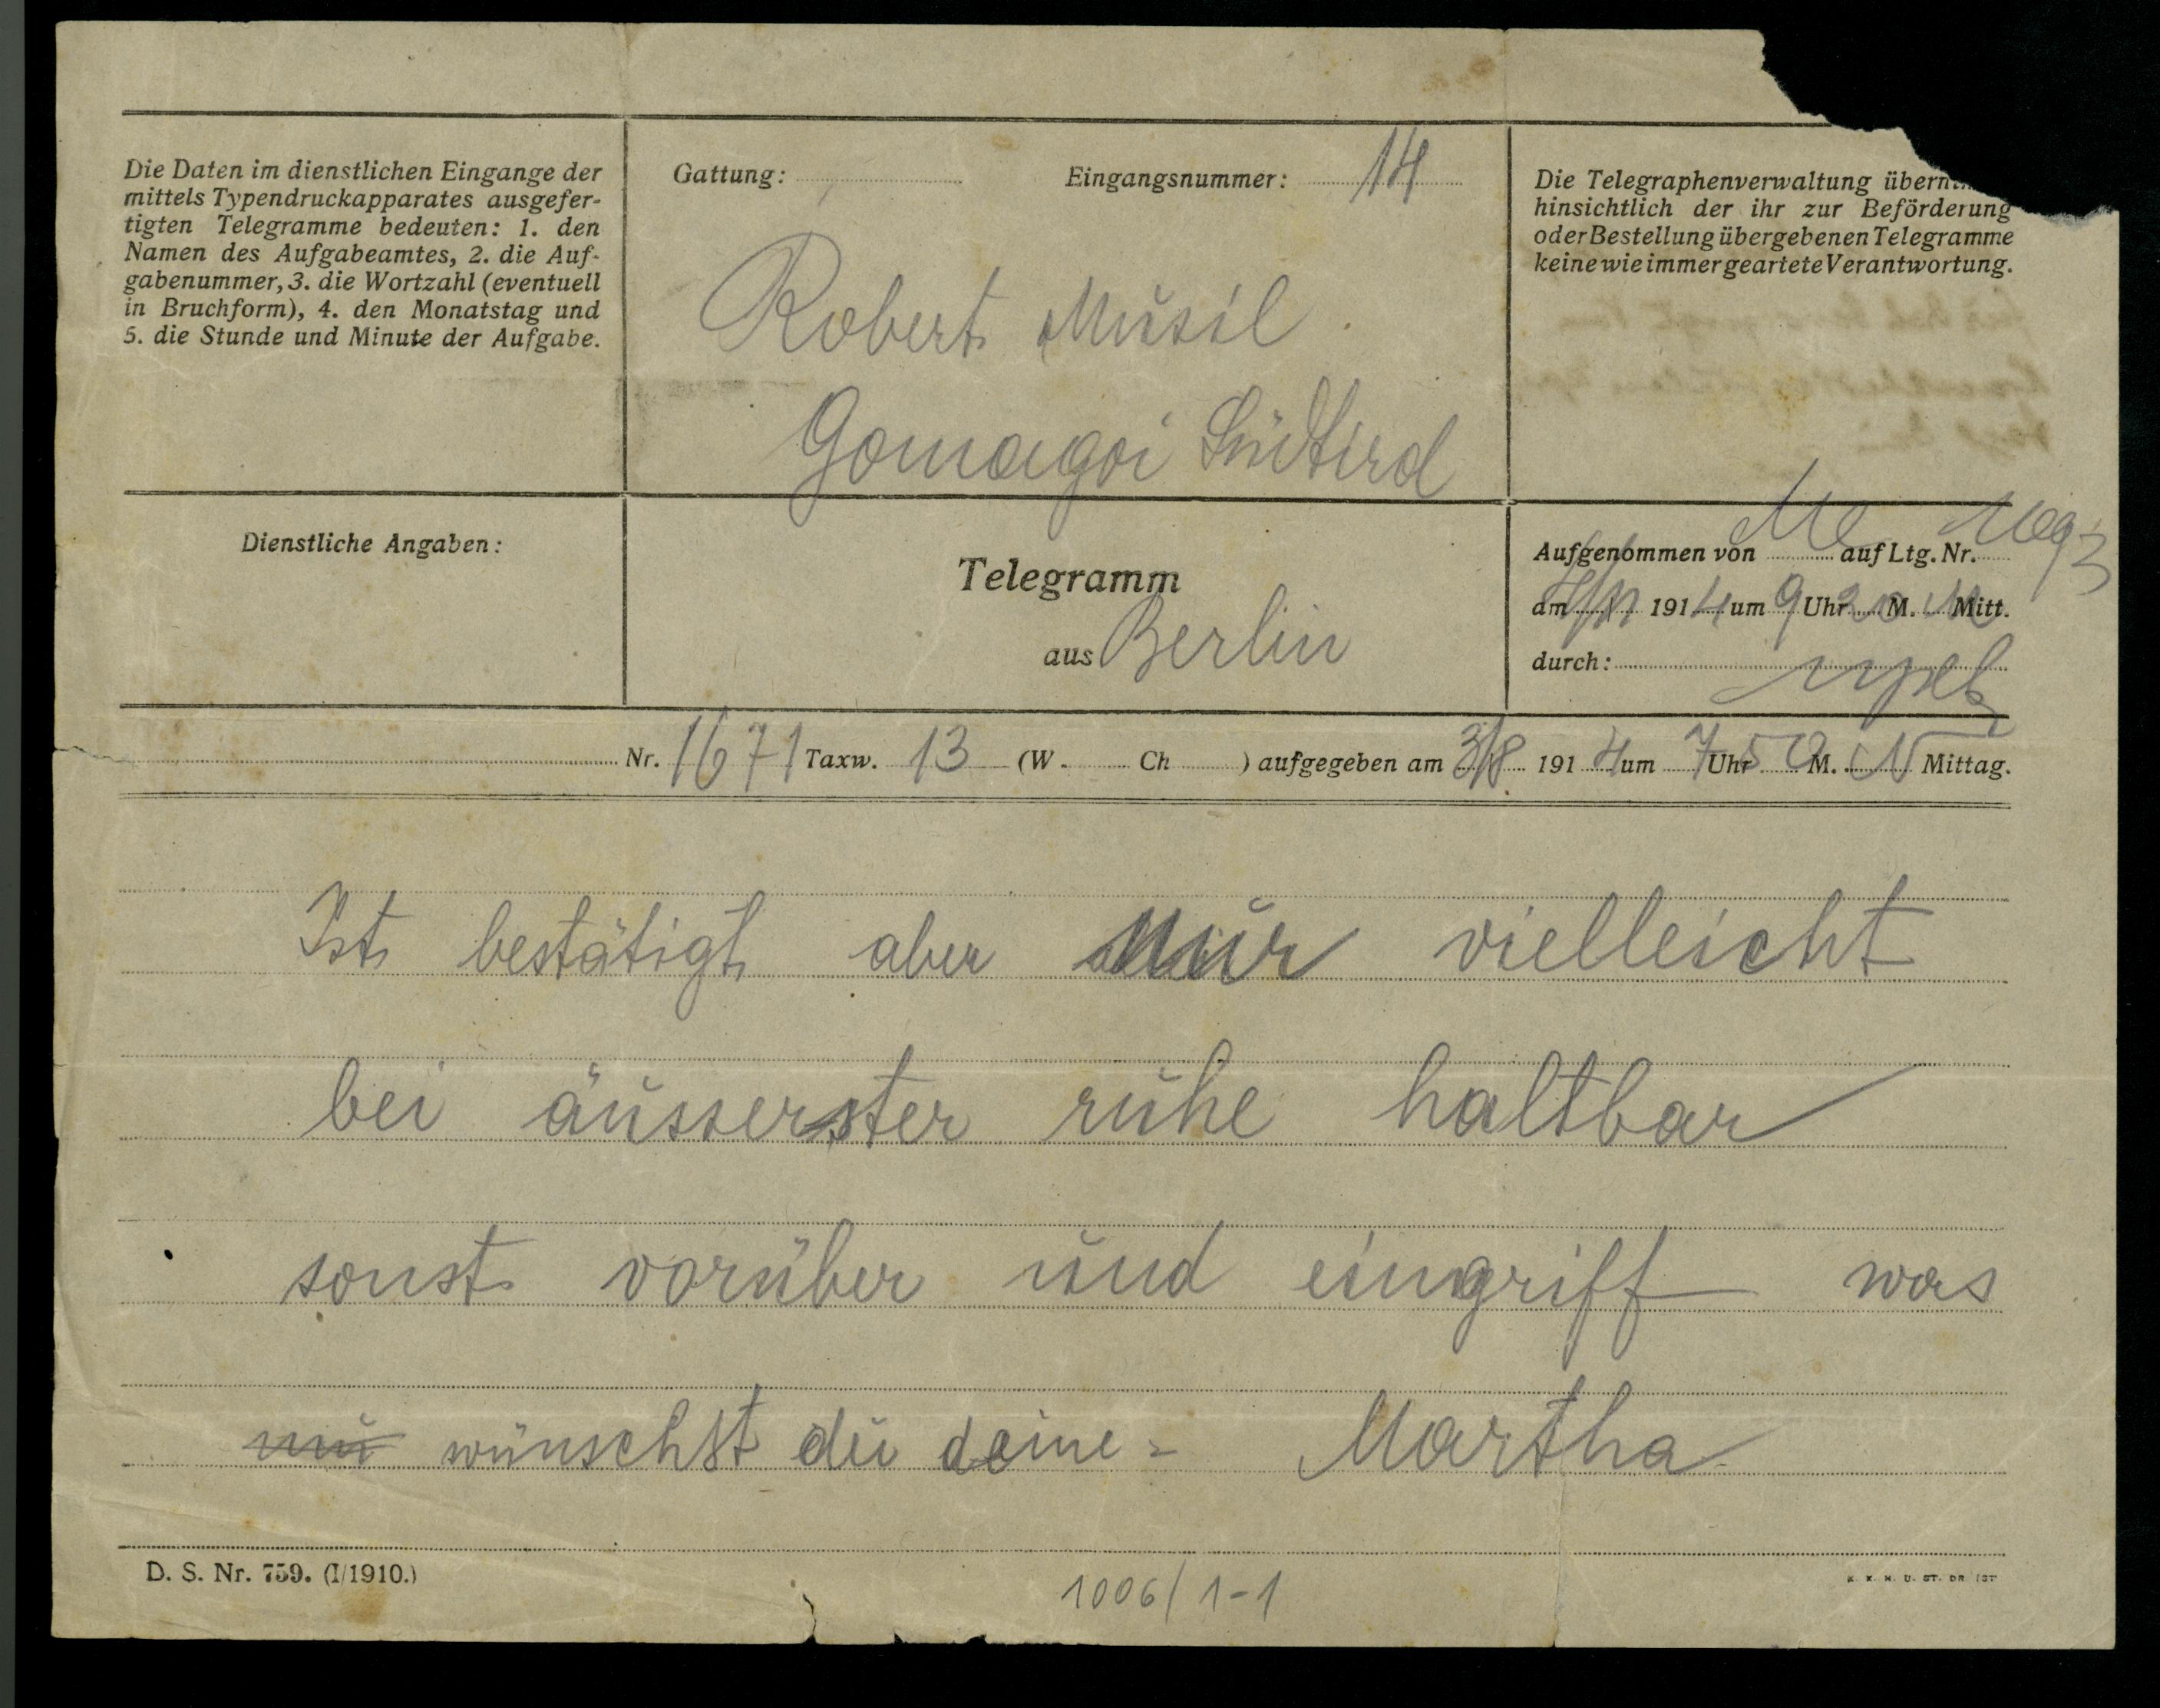 Die Daten im dienstlichen Eingange der
mittels Typendruckapparates ausgefer-
tigten Telegramme bedeuten: 1. den
Namen des Aufgabeamtes, 2. die Auf-
gabenummer, 3. die Wortzahl (eventuell
in Bruchform), 4. den Monatstag und
5. die Stunde und Minute der Aufgabe.
Gattung: Eingangsnummer: 14
Robert Musil
Gomagoi Südtirol
Die Telegraphenverwaltung übern
hinsichtlich der ihr zur Beförderung
oder Bestellung übergebenen Telegramme
keine wie immer geartete Verantwortung.
Dienstliche Angaben:
Telegramm
aus Berlin
Aufgenommen von auf Ltg. Nr.
am 191 4 um 9 Uhr M. Mitt.
durch:
Nr. 1671 Taxw. 13 (W. Ch ) aufgegeben am 3/8 191 4 um 7 Uhr 50 M. N Mittag.
Ist bestätigt aber nur vielleicht
bei äusserster ruhe haltbar
sonst vorüber und eingriff was
wünschst du deine = Martha
D. S. Nr. 759. (I/1910.)
1006/1-1